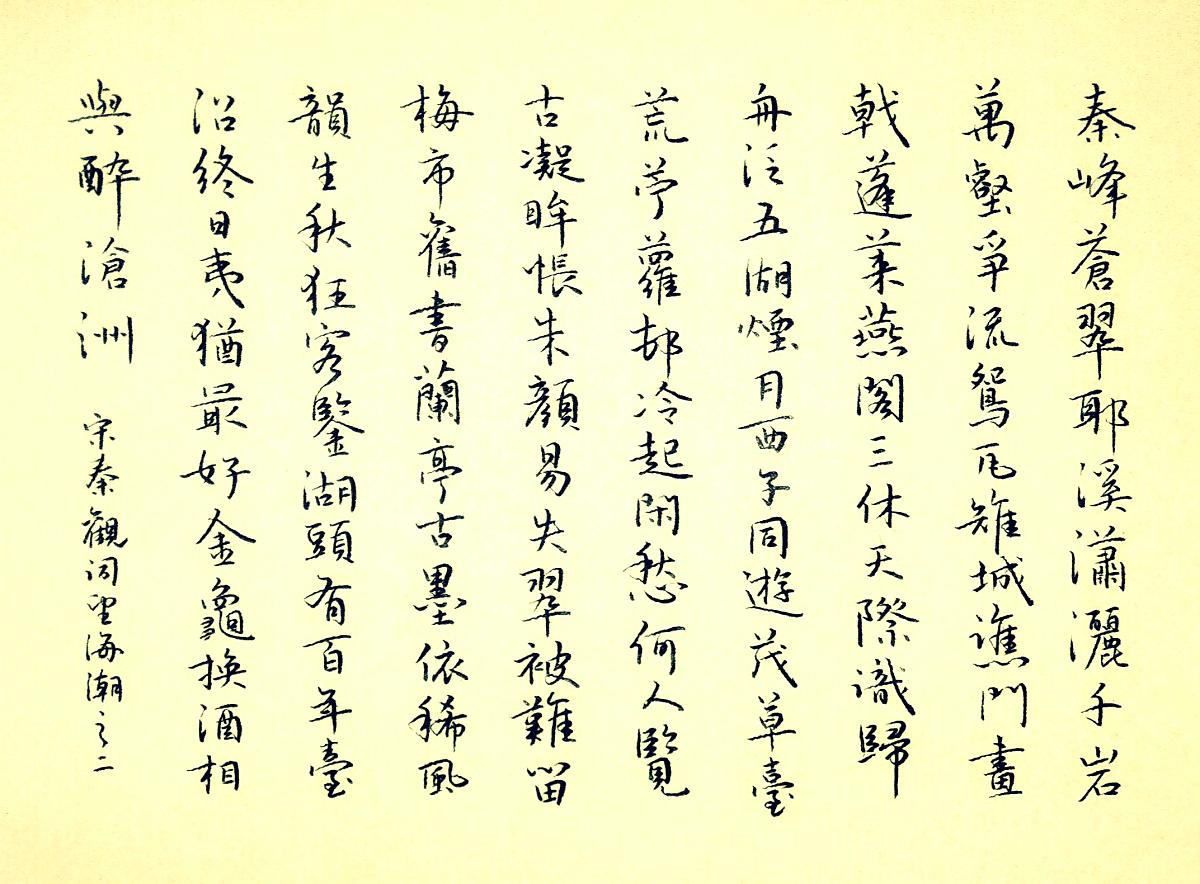 秦峰蒼翠耶溪瀟灑千岩
萬壑爭流鴛瓦雉城譙門畫
戟蓬萊燕閣三休天際識歸
舟泛五湖煙月西子同遊茂草臺
荒苧蘿邨冷起閑愁何人覽
古凝眸悵朱顏易失翠被難留
梅市舊書蘭亭古墨依稀風
韻生秋狂客鑒湖頭有百年臺
沼終日夷猶最好金龜換酒相
與醉滄洲 宋秦觀詞望海潮之二